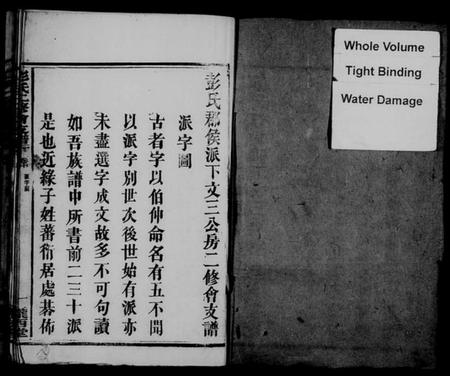 彭氏郡侯派下文三公房二修會支譜
派字圖
古者字以伯仲命名有五不聞
以派字別世次後世始有派亦
未盡選字成文故多不可句讀
如吾族譜中所書前二三十派
是也近緣子姓蕃衍居處碁佈
Whole Volume
Tight Binding
Water Damage